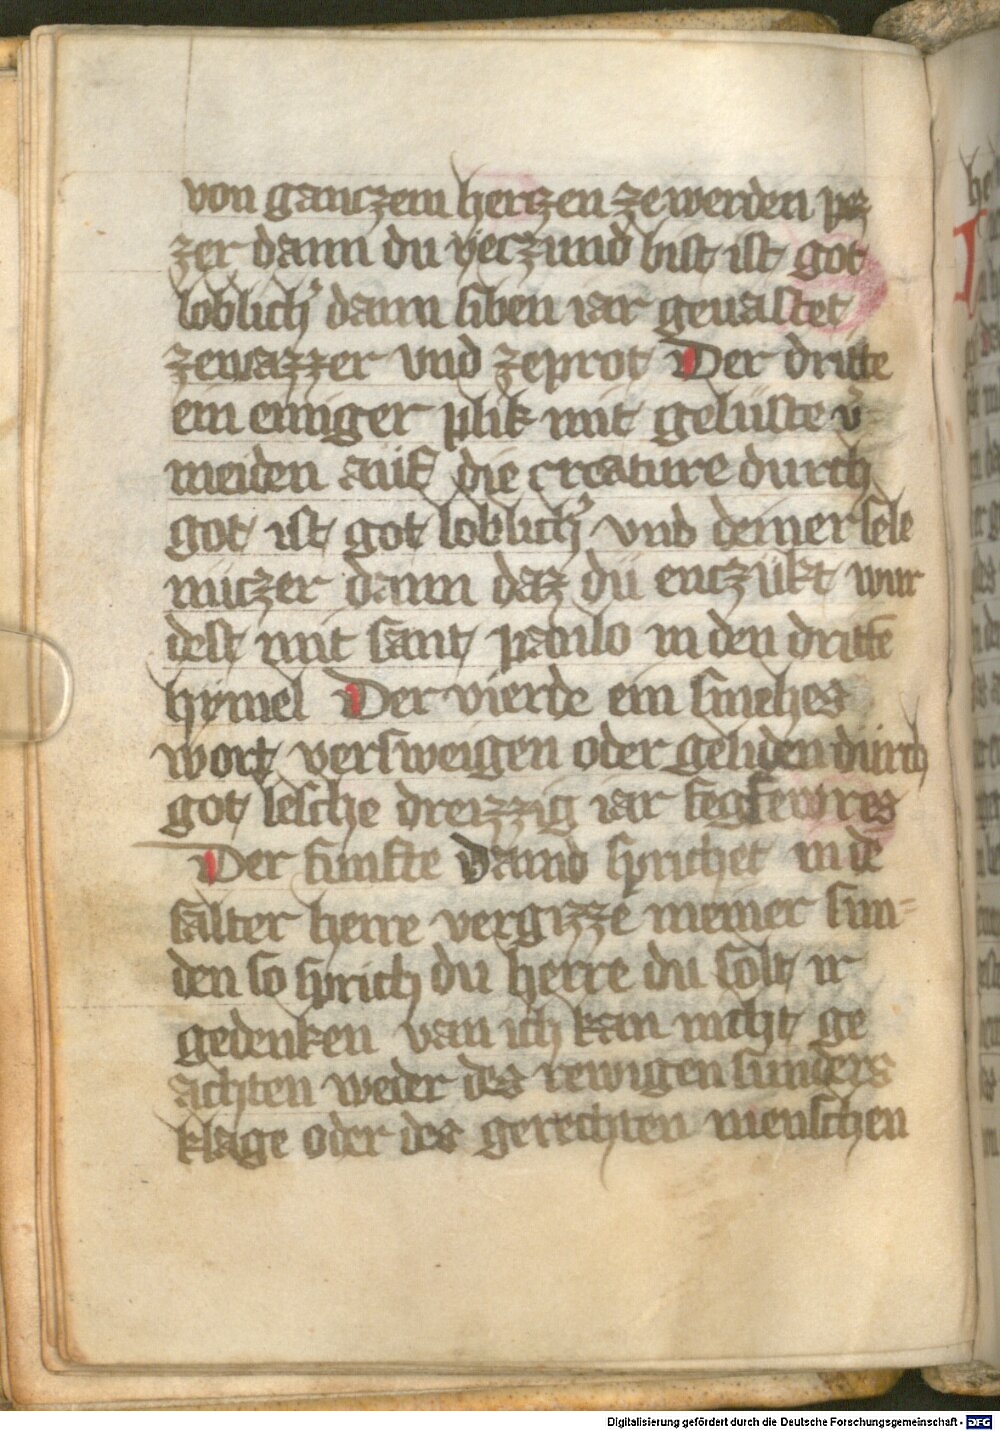 von ganczem herczen ze werden pez
zer dann du yeczund bist ist got
loblich' dann siben iar geuastet
zewazzer vnd zeprot Der dritte
ein einiger plik mit gelüste v̄
meiden auf die creature durch
got ist got loblich' vnd deiner sele
nüczer dann daz du enczükt wur
dest mit sant paulo in den drittē
hymel Der vierde ein smehes
wort versweigen oder geliden durch
got lesche dreizzig iar fegfewres
Der funfte Dauid sprichet in dē
salter herre vergizze meiner sun=
den so sprich du herre du solt ir
gedenken wan ich kan nicht ge
achten weder des rewigen sunders
klage oder des gerechten menschen
Digitalisierung gefördert durch die Deutsche Forschungsgemeinschaft - DFG